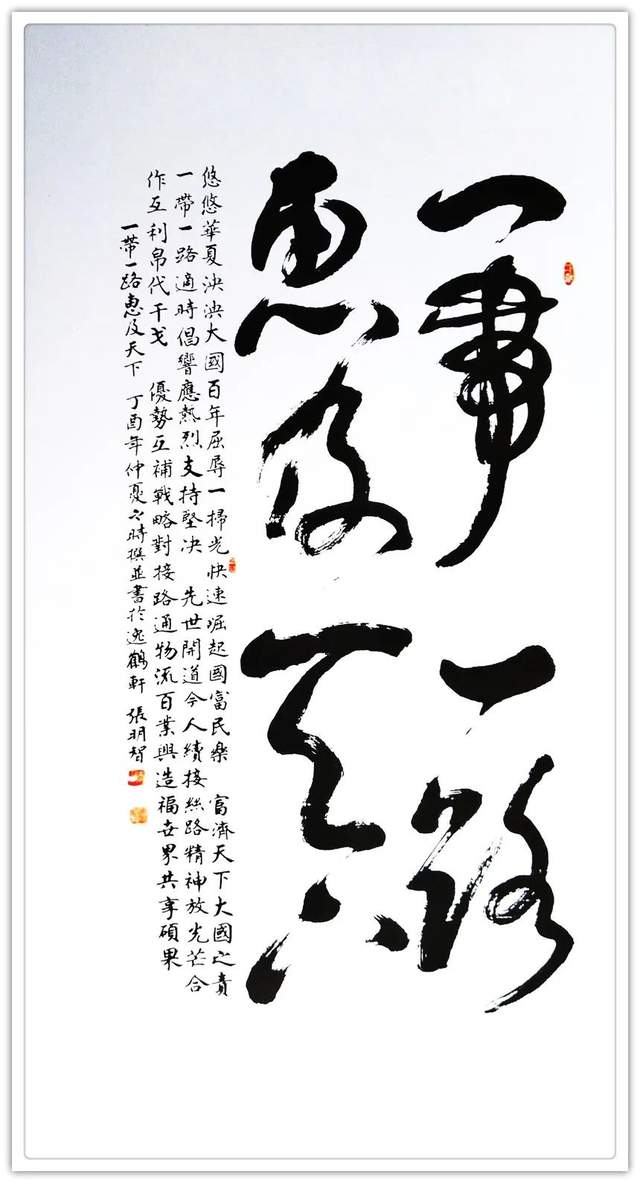 一帶一路
惠及天下
悠悠華夏泱泱大國百年屈辱一掃光快速崛起國富民樂 富濟天下大國之責
一帶一路適時倡響應熱烈支持堅决 先世開道今人續接絲路精神放光芒合
作互利帛代干戈 優勢互補戰略對接路通物流百業興造福世界共享碩果
一帶一路惠及天下 丁酉年仲夏之時撰並書於逸鶴軒 張明智